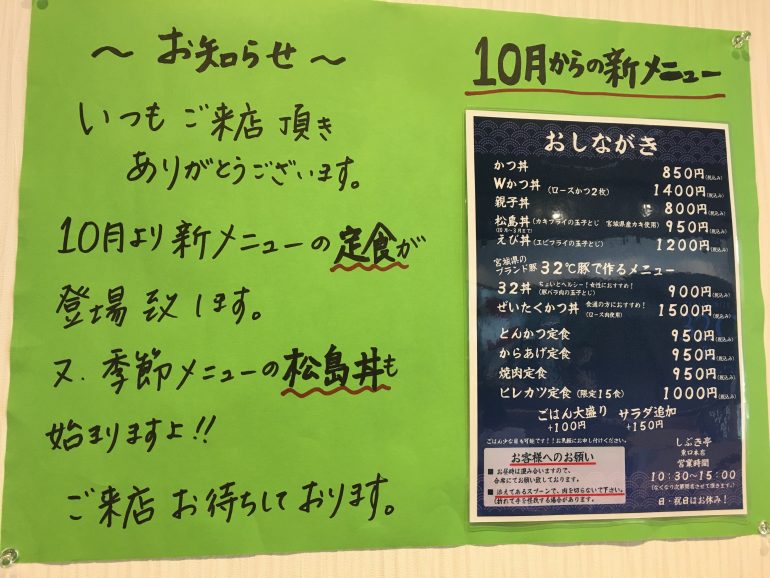 〜 お知らせ 〜
いつも ご来店 頂き
ありがとうございます。
10月より 新メニューの 定食が
登場 致します。
又、季節メニューの松島丼も
始まりますよ!!
ご来店 お待ちしております。
10月からの新メニュー
おしながき
かつ丼 850円(税込み)
Wかつ丼(ロースかつ2枚) 1400円(税込み)
親子丼 800円(税込み)
松島丼(カキフライの玉子とじ 宮城県産カキ使用) 950円(税込み)
(10月〜3月まで)
えび丼(エビフライの玉子とじ) 1200円(税込み)
宮城県の
ブランド豚 32℃豚で作るメニュー
32丼 ちょいとヘルシー!女性におすすめ!
(豚バラ肉の玉子とじ) 900円(税込み)
ぜいたくかつ丼 食通の方におすすめ!
(ロース肉使用) 1500円(税込み)
とんかつ定食 950円(税込み)
からあげ定食 950円(税込み)
焼肉定食 950円(税込み)
ヒレカツ定食(限定15食) 1000円(税込み)
ごはん大盛り サラダ追加
+100円 +150円
ごはん少な目も可能です!!お気軽にお申し付けください。
お客様へのお願い
■ お昼時は混み合いますので、
合席にてお願い致しております。
■ 添えてあるスプーンで、肉を切らないで下さい。
(折れて手を怪我する場合があります。)
しぶき亭
東口本店
営業時間
10:30〜15:00
(なくなり次第閉店させて頂きます。)
日・祝日はお休み!